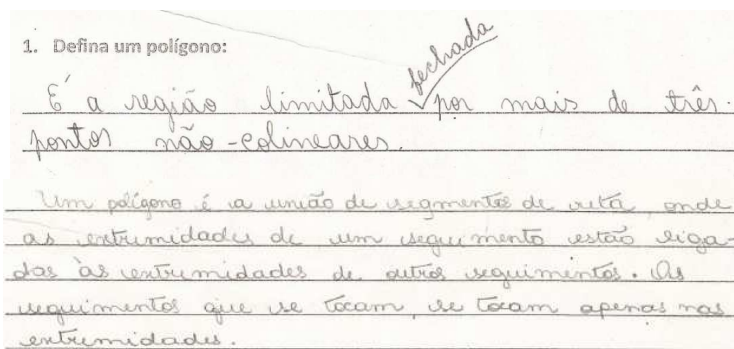 1. Defina um polígono:
fechada
É a região limitada por mais de três
pontos não-colineares.
Um polígono é a união de segmentos de reta, onde
as extremidades de um seguimento estão liga-
das às extremidades de outros seguimentos. Os
seguimentos que se tocam, se tocam apenas nas
extremidades.